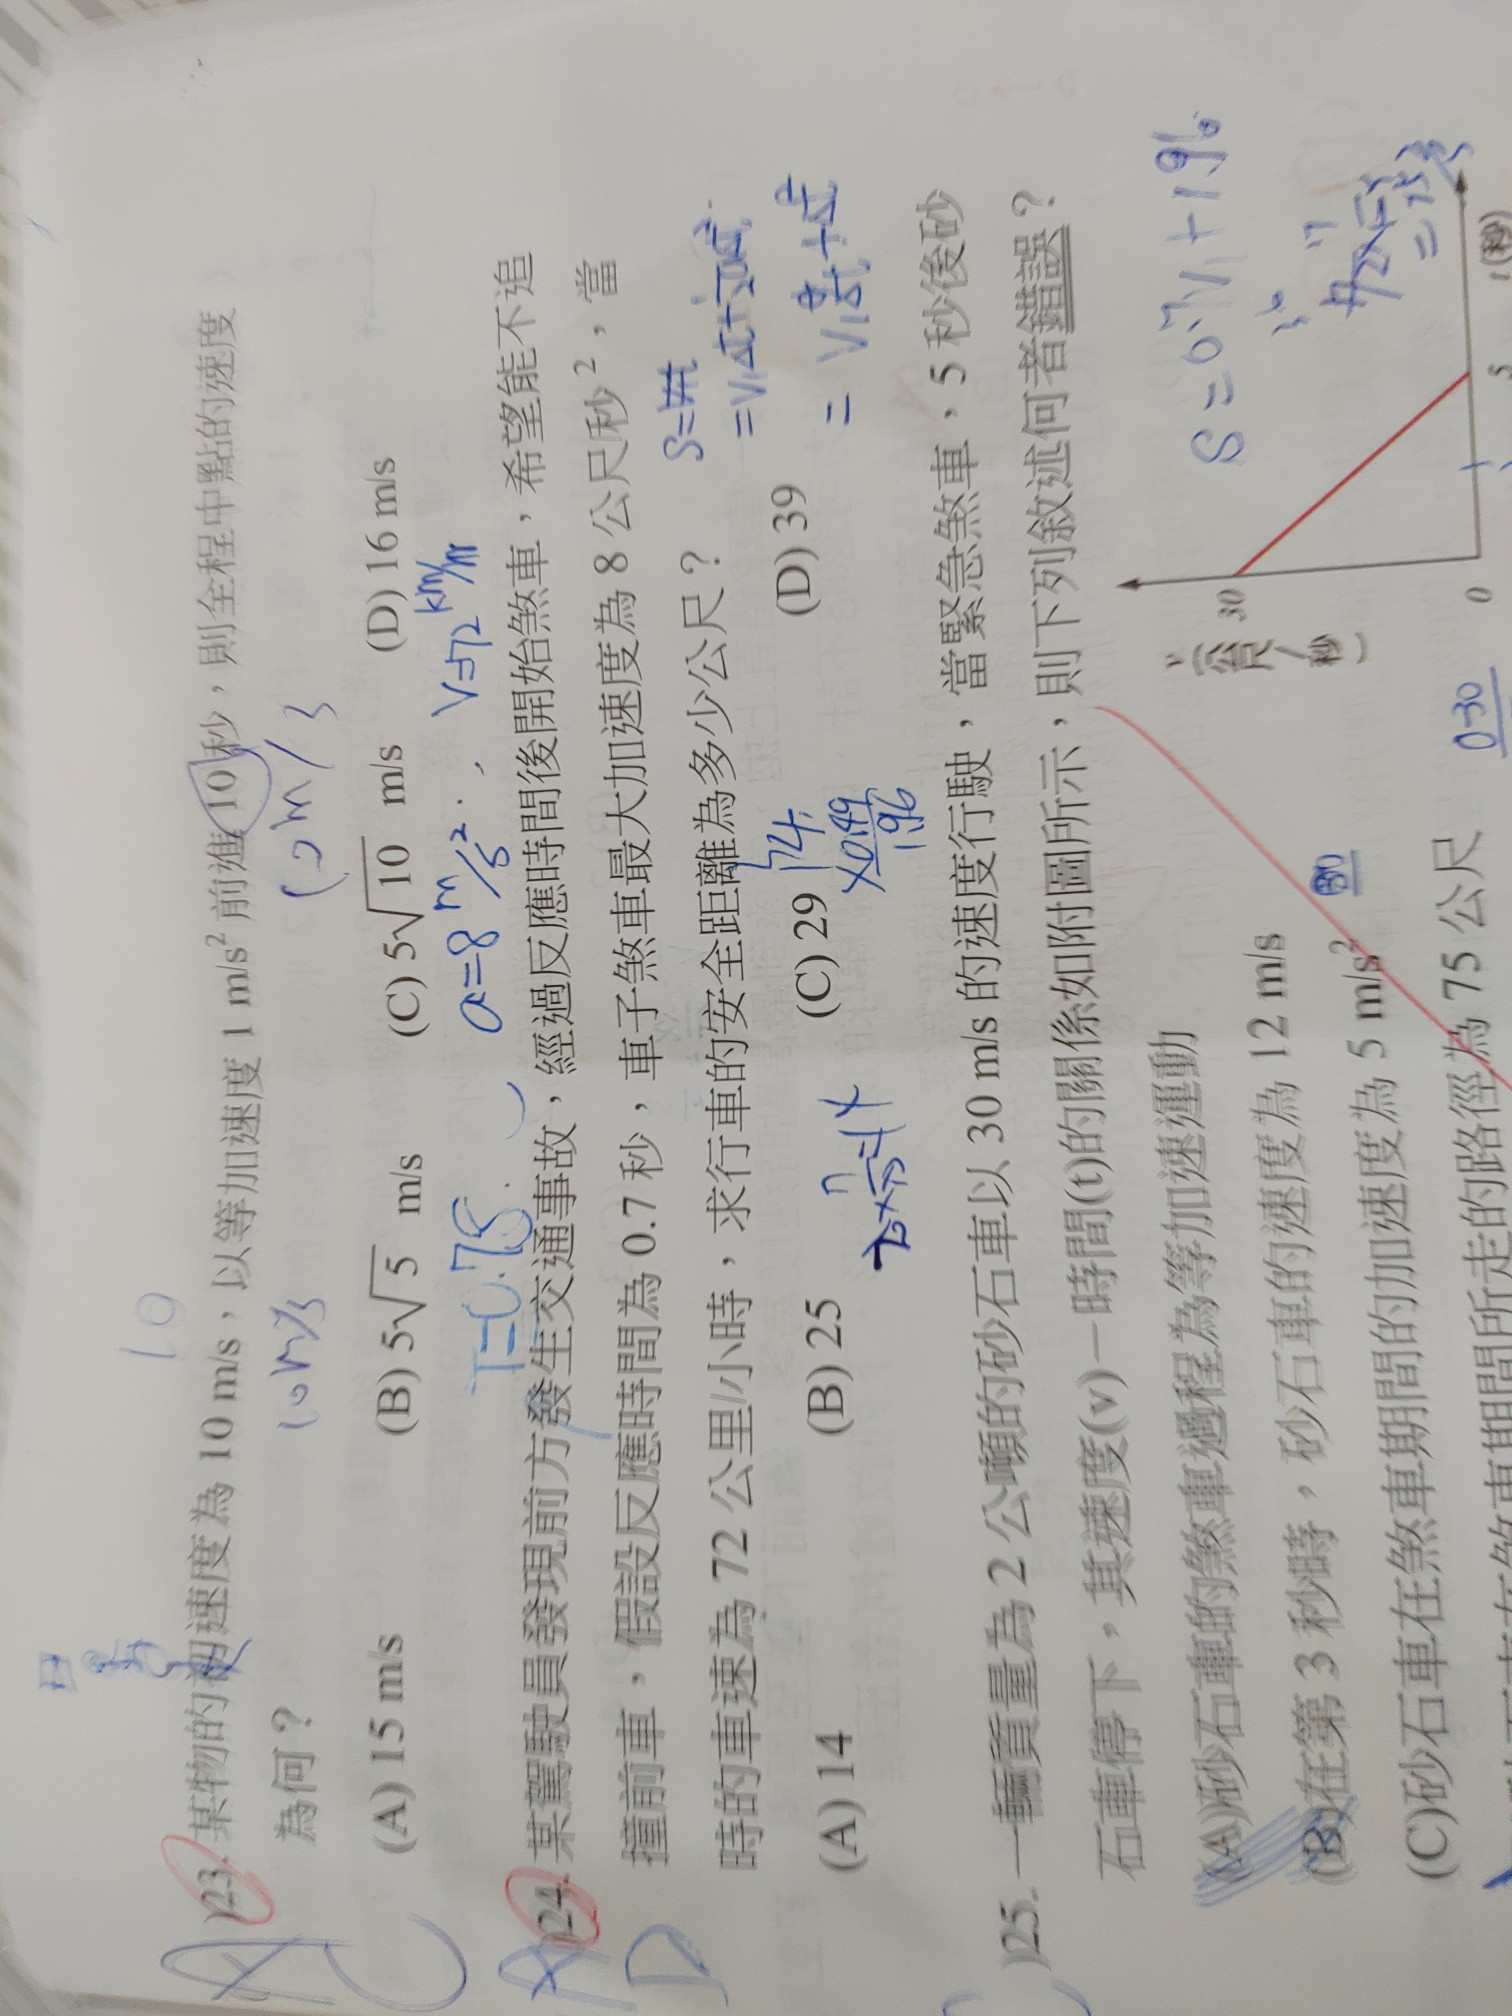 10
A )23. 某物的初速度為 10 m/s，以等加速度 1 m/s² 前進 10 秒，則全程中點的速度
10 m/s
C 為何？
(A) 15 m/s (B) 5√5 m/s (C) 5√10 m/s (D) 16 m/s
T=0.7s a=8 m/s² V=72 km/hr
A )24. 某駕駛員發現前方發生交通事故，經過反應時間後開始煞車，希望能不追
D 撞前車，假設反應時間為 0.7 秒，車子煞車最大加速度為 8 公尺/秒²，當
時的車速為 72 公里/小時，求行車的安全距離為多少公尺？
(A) 14 (B) 25 (C) 29 (D) 39
×0.49
1.96
)25. 一輛質量為 2 公噸的砂石車以 30 m/s 的速度行駛，當緊急煞車，5 秒後砂
石車停下，其速度(v)－時間(t)的關係如附圖所示，則下列敘述何者錯誤？
(A)砂石車的煞車過程為等加速運動
(B)在第 3 秒時，砂石車的速度為 12 m/s
(C)砂石車在煞車期間的加速度為 5 m/s²
砂石車在煞車期間所走的路徑為 75 公尺
S=0.7V₁+1.96
v
(公尺/秒)
30
0
5
t(秒)
0-30